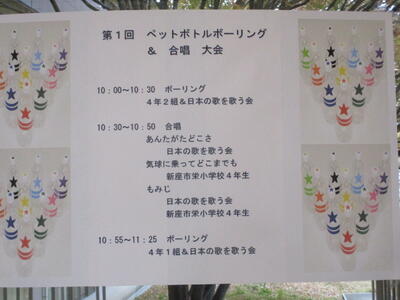 第１回　ペットボトルボーリング
＆　合唱　大会
１０：００〜１０：３０　ボーリング
４年２組＆日本の歌を歌う会
１０：３０〜１０：５０　合唱
あんたがたどこさ
日本の歌を歌う会
気球に乗ってどこまでも
新座市栄小学校４年生
もみじ
日本の歌を歌う会
新座市栄小学校４年生
１０：５５〜１１：２５　ボーリング
４年１組＆日本の歌を歌う会